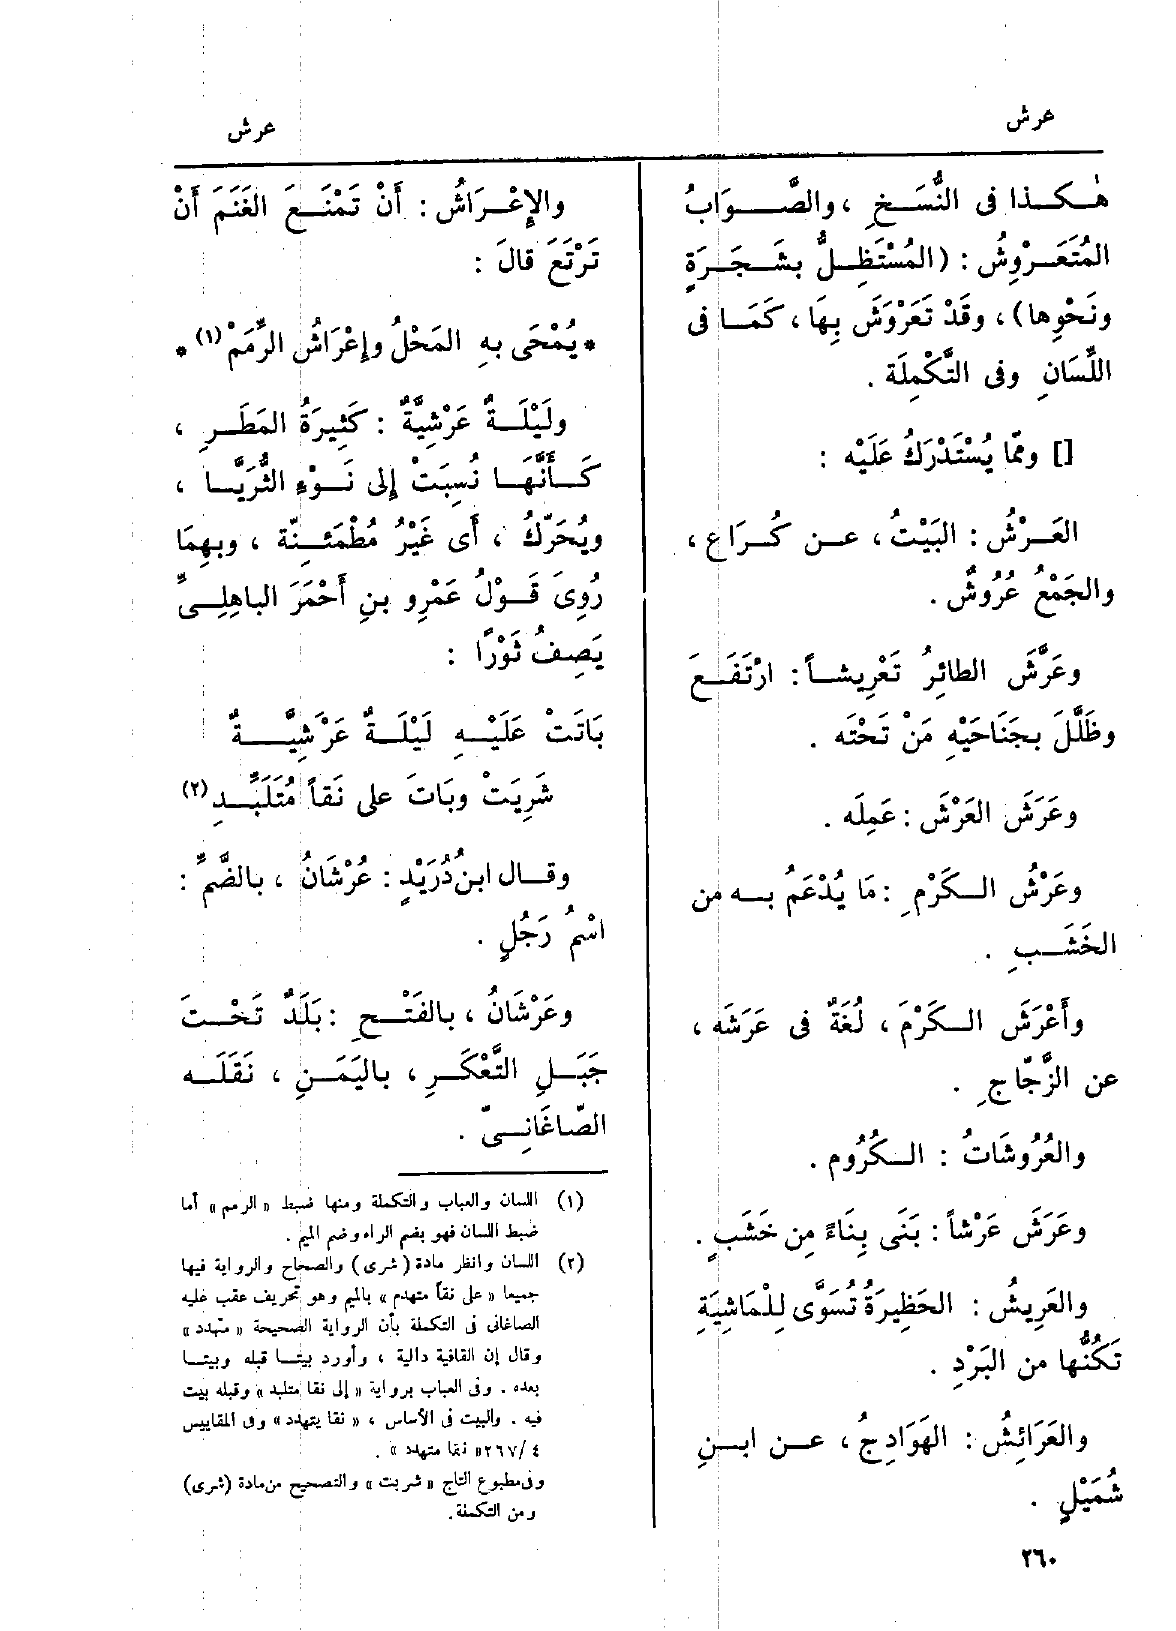 عرش
عرش
هٰكذا فى النُّسَخِ ، والصَّوَابُ
المُتَعَرْوِشُ : (المُسْتَظِلُّ بشَجَرَةٍ
ونَحْوِها) ، وقَدْ تَعَرْوَشَ بِهَا ، كَمَا فى
اللِّسَانِ وفى التَّكْمِلَة .
[] وممّا يُسْتَدْرَكُ عَلَيْه :
العَرْشُ : البَيْتُ ، عن كُرَاع ،
والجَمْعُ عُرُوشٌ .
وعَرَّشَ الطائِرُ تَعْرِيشاً : ارْتَفَعَ
وظَلَّلَ بجَنَاحَيْهِ مَنْ تَحْتَه .
وعَرَشَ العَرْشَ : عَمِلَه .
وعَرْشُ الكَرْمِ : مَا يُدْعَمُ به من
الخَشَبِ .
وأَعْرَشَ الكَرْمَ ، لُغَةٌ فى عَرَشَه ،
عن الزَّجّاجِ .
والعُرُوشَاتُ : الكُرُوم .
وعَرَشَ عَرْشاً : بَنَى بِنَاءً مِن خَشَبٍ .
والعَرِيشُ : الحَظِيرَةُ تُسَوَّى لِلْمَاشِيَةِ
تَكُنُّها من البَرْدِ .
والعَرَائِشُ : الهَوَادِجُ ، عن ابنِ
شُمَيْلٍ .
والإِعْرَاشُ : أَنْ تَمْنَعَ الغَنَمَ أَنْ
تَرْتَعَ قالَ :
* يُمْحَى به المَحْلُ وإِعْرَاشُ الرِّمَمْ (١) *
ولَيْلَةٌ عَرْشِيَّةٌ : كَثِيرَةُ المَطَرِ ،
كَأَنَّهَا نُسِبَتْ إِلى نَوْءِ الثُّرَيَّا ،
ويُحَرّكُ ، أَى غَيْرُ مُطْمَئِنّة ، وبهِمَا
رُوِىَ قَوْلُ عَمْرِو بنِ أَحْمَرَ الباهِلِىِّ
يَصِفُ ثَوْرًا :
بَاتَتْ عَلَيْهِ لَيْلَةٌ عَرْشِيَّةٌ
شَرِيَتْ وبَاتَ على نَقاً مُتَلَبِّدِ (٢)
وقال ابنُ دُرَيْدٍ : عُرْشَانُ ، بالضّمِّ :
اسْمُ رَجُلٍ .
وعَرْشَانُ ، بالفَتْحِ : بَلَدٌ تَحْتَ
جَبَلِ التَّعْكَرِ ، باليَمَنِ ، نَقَلَه
الصّاغَانِىّ .
(١) اللسان والعباب والتكملة ومنها ضبط « الرمم » أما
ضبط اللسان فهو بضم الراء وضم الميم .
(٢) اللسان وانظر مادة ( شرى ) والصحاح والرواية فيها
جميعا « على نقاً متهدم » بالميم وهو تحريف عقب عليه
الصاغانى فى التكملة بأن الرواية الصحيحة « متهدد »
وقال إن القافية دالية ، وأورد بيتا قبله وبيتا
بعده . وفى العباب برواية « إلى نقا متلبد » وقبله بيت
فيه . والبيت فى الأساس ، « نقا يتهدد » وفى المقاييس
٤ /٢٦٧ « نقا متهدد » .
وفى مطبوع التاج « شربت » والتصحيح من مادة (شرى)
ومن التكملة .
٢٦٠